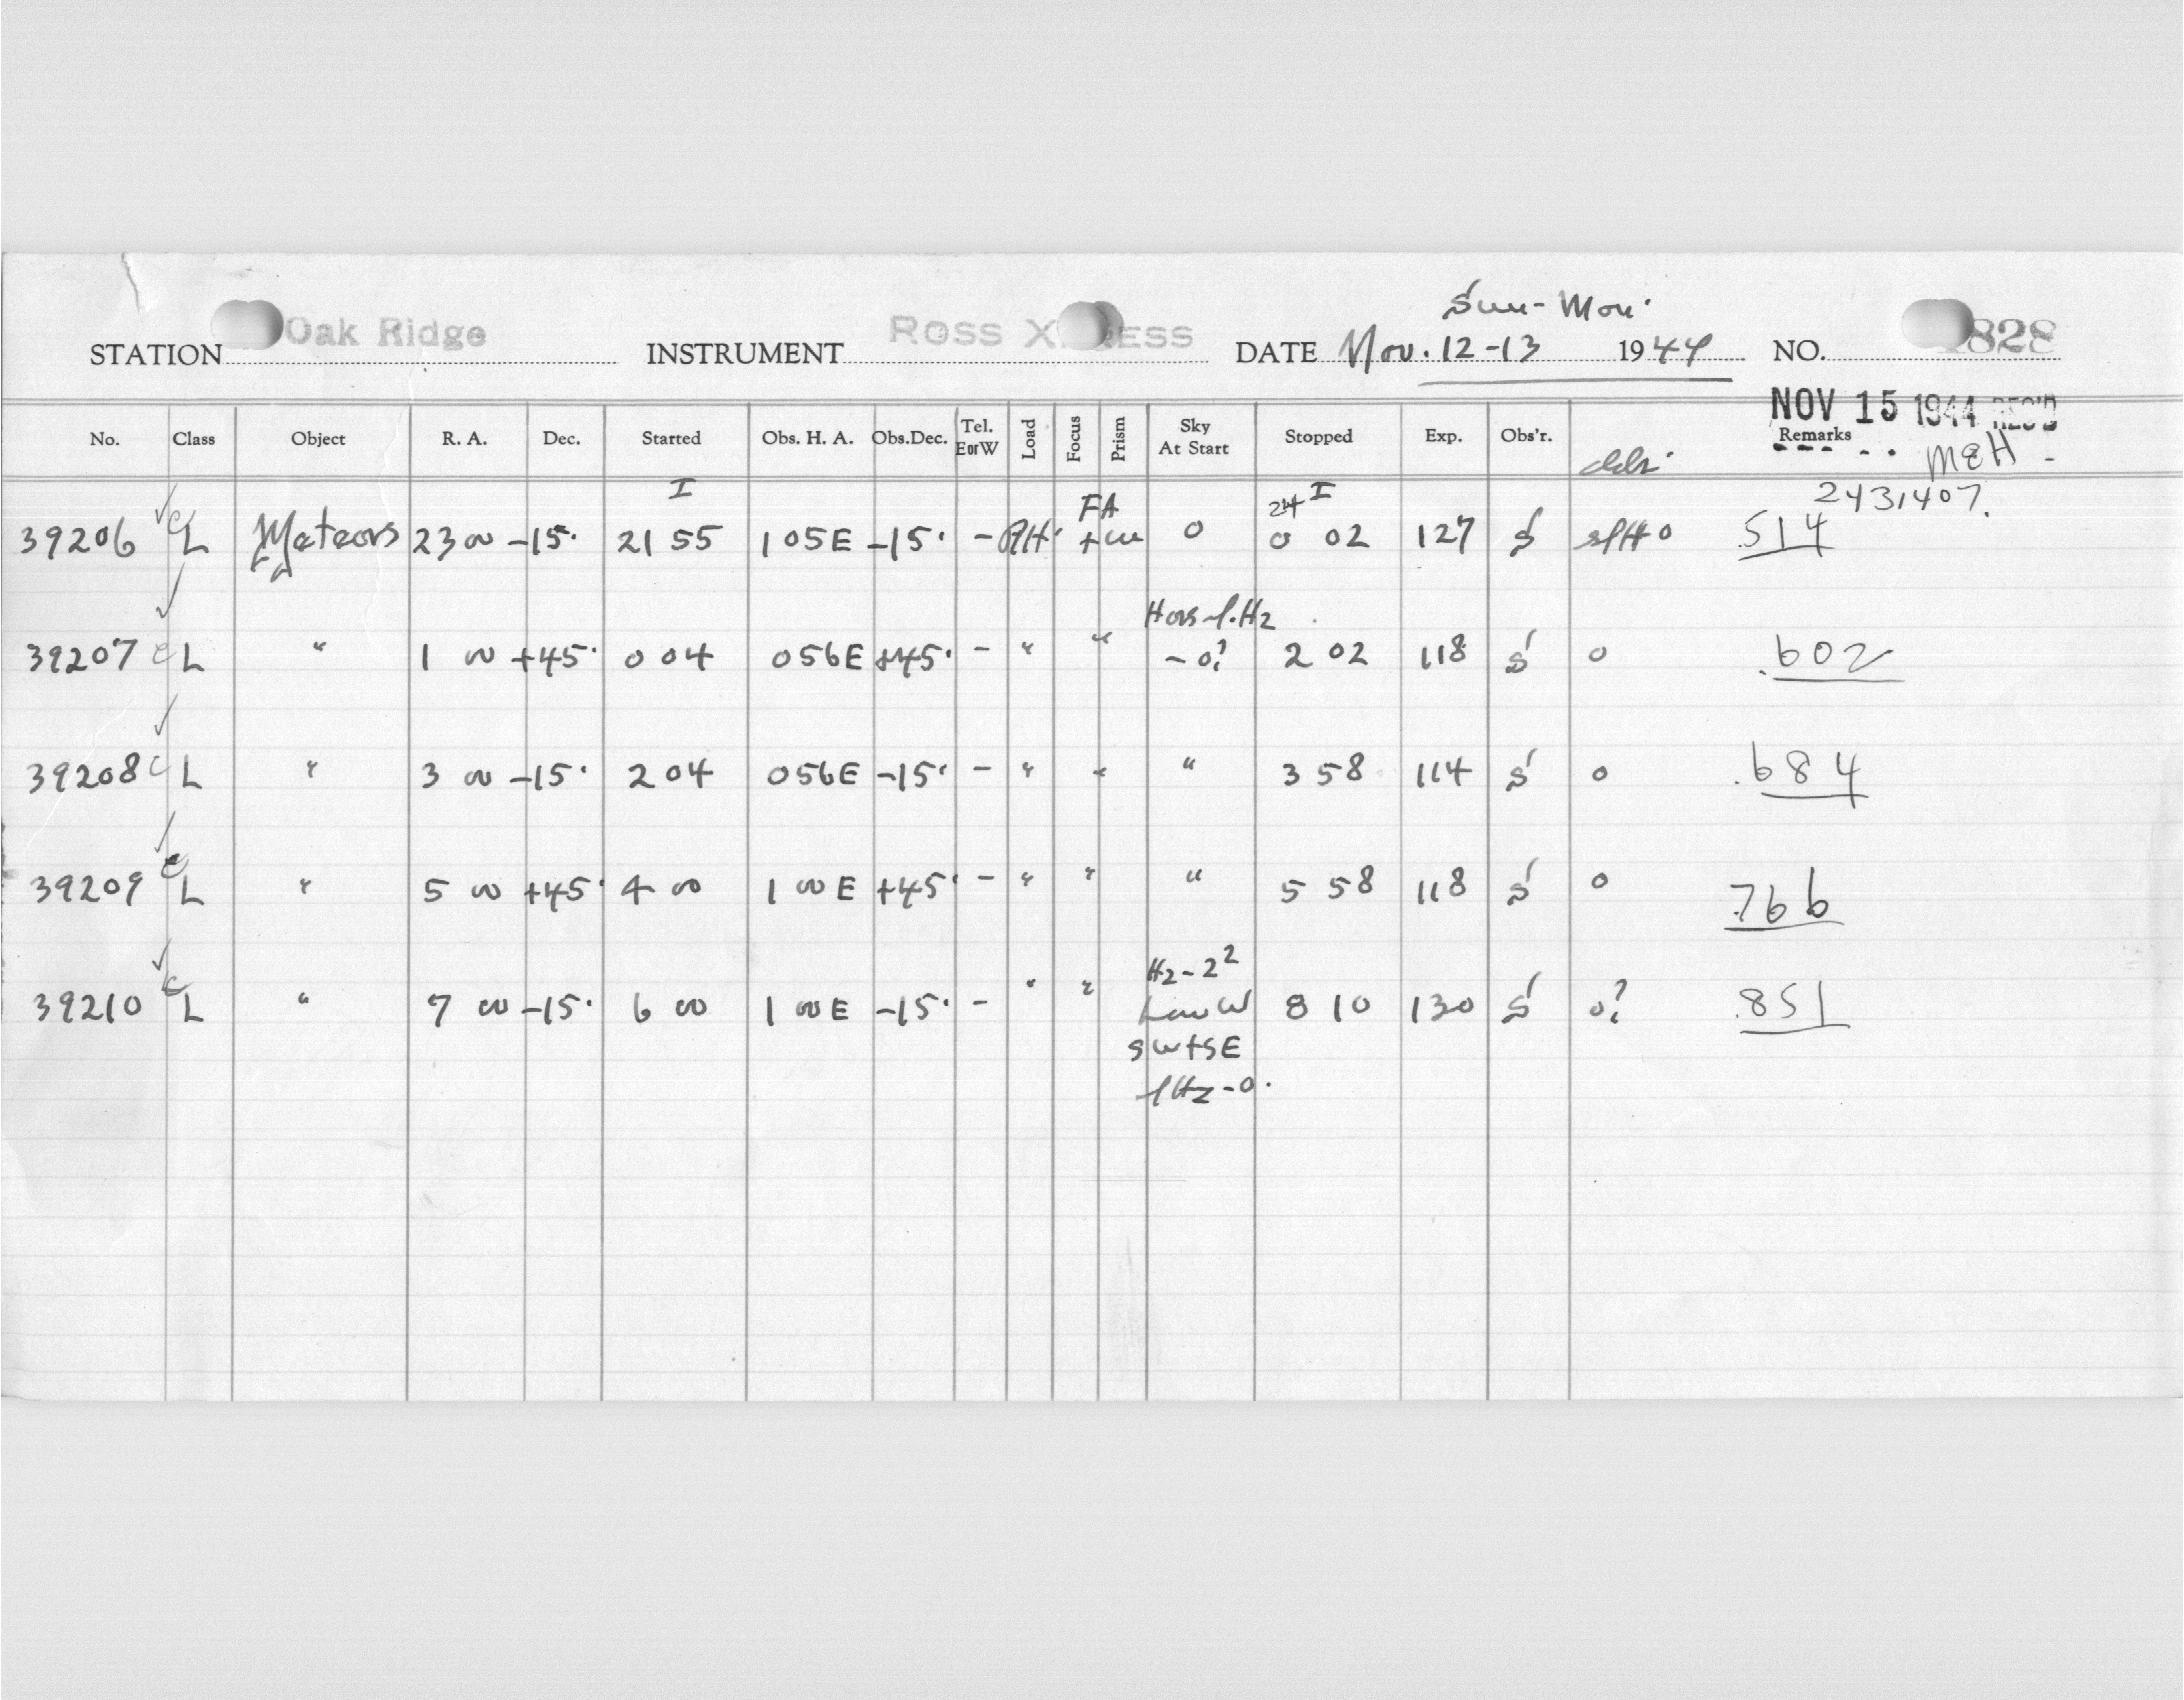 Sun - Mon.
STATION Oak Ridge INSTRUMENT Ross X ESS DATE Nov. 12-13 1944 NO. 828
NOV 15 1944 REC'D
No. Class Object R. A. Dec. Started Obs. H. A. Obs.Dec. Tel. E or W Load Focus Prism Sky At Start Stopped Exp. Obs'r. Remarks
MEH -
I FA 24 I 2431407.
39206 c L Meteors 23 00 -15° 21 55 1 05E -15° - + 0 0 02 127 S 0 .514
39207 c L " 1 00 +45° 0 04 0 56E +45° - " " - 0? 2 02 118 S 0 .602
39208 c L " 3 00 -15° 2 04 0 56E -15° - " " " 3 58 114 S 0 .684
39209 c L " 5 00 +45° 4 00 1 00E +45° - " " " 5 58 118 S 0 .766
Hz - 2²
39210 c L " 7 00 -15° 6 00 1 00E -15° - " " Low W 8 10 130 S 0? .851
SW + SE